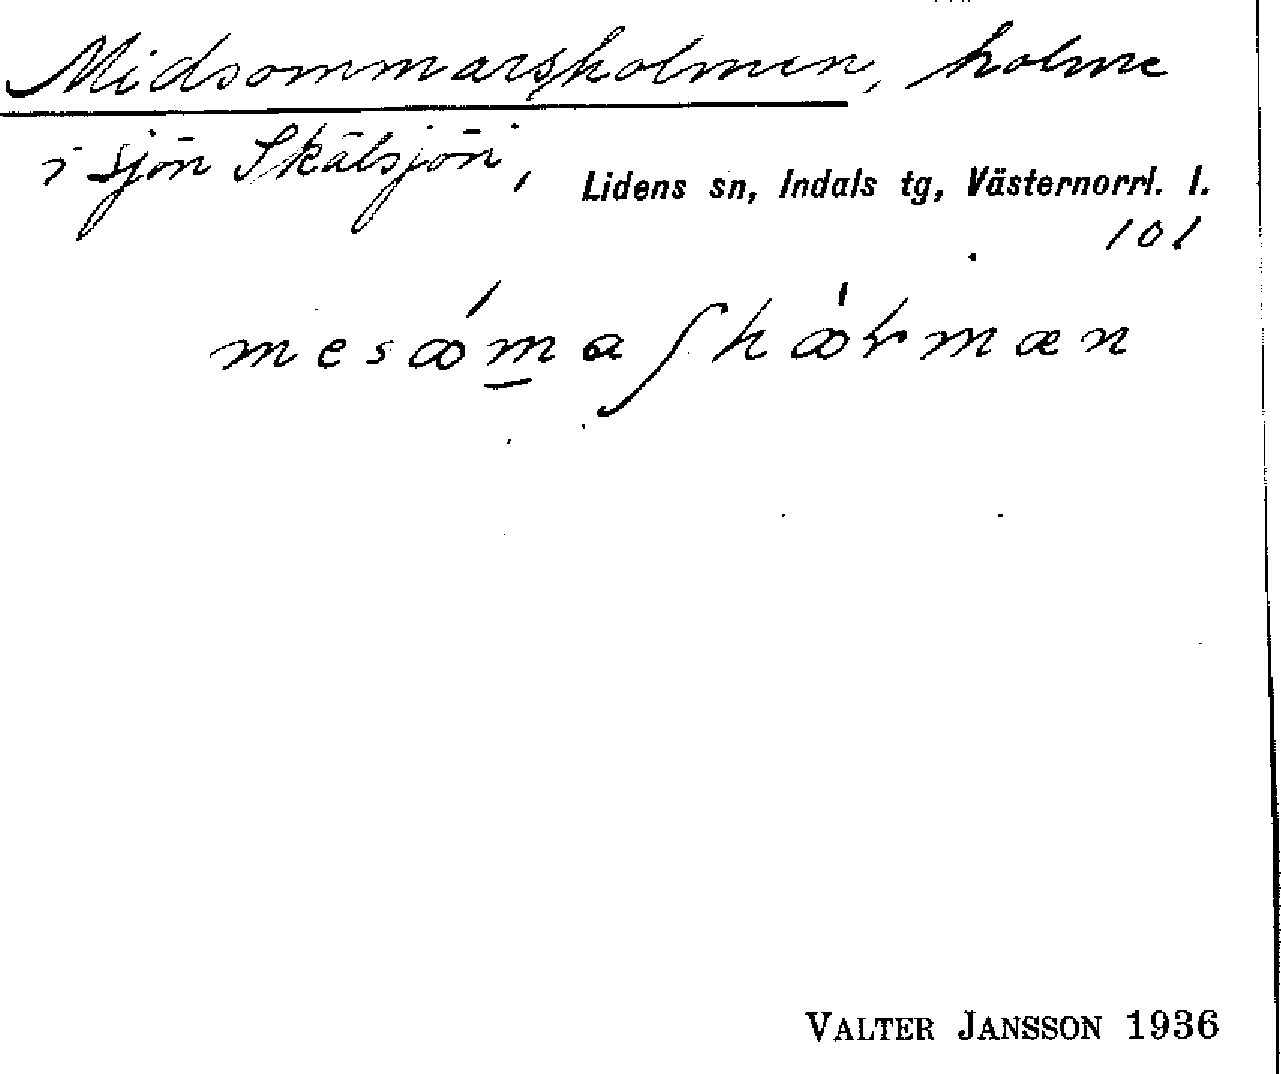 Midsommarsholmen, holme
i sjön Skälsjön,
Lidens sn, Indals tg, Västernorrl. l.
101
VALTER JANSSON 1936